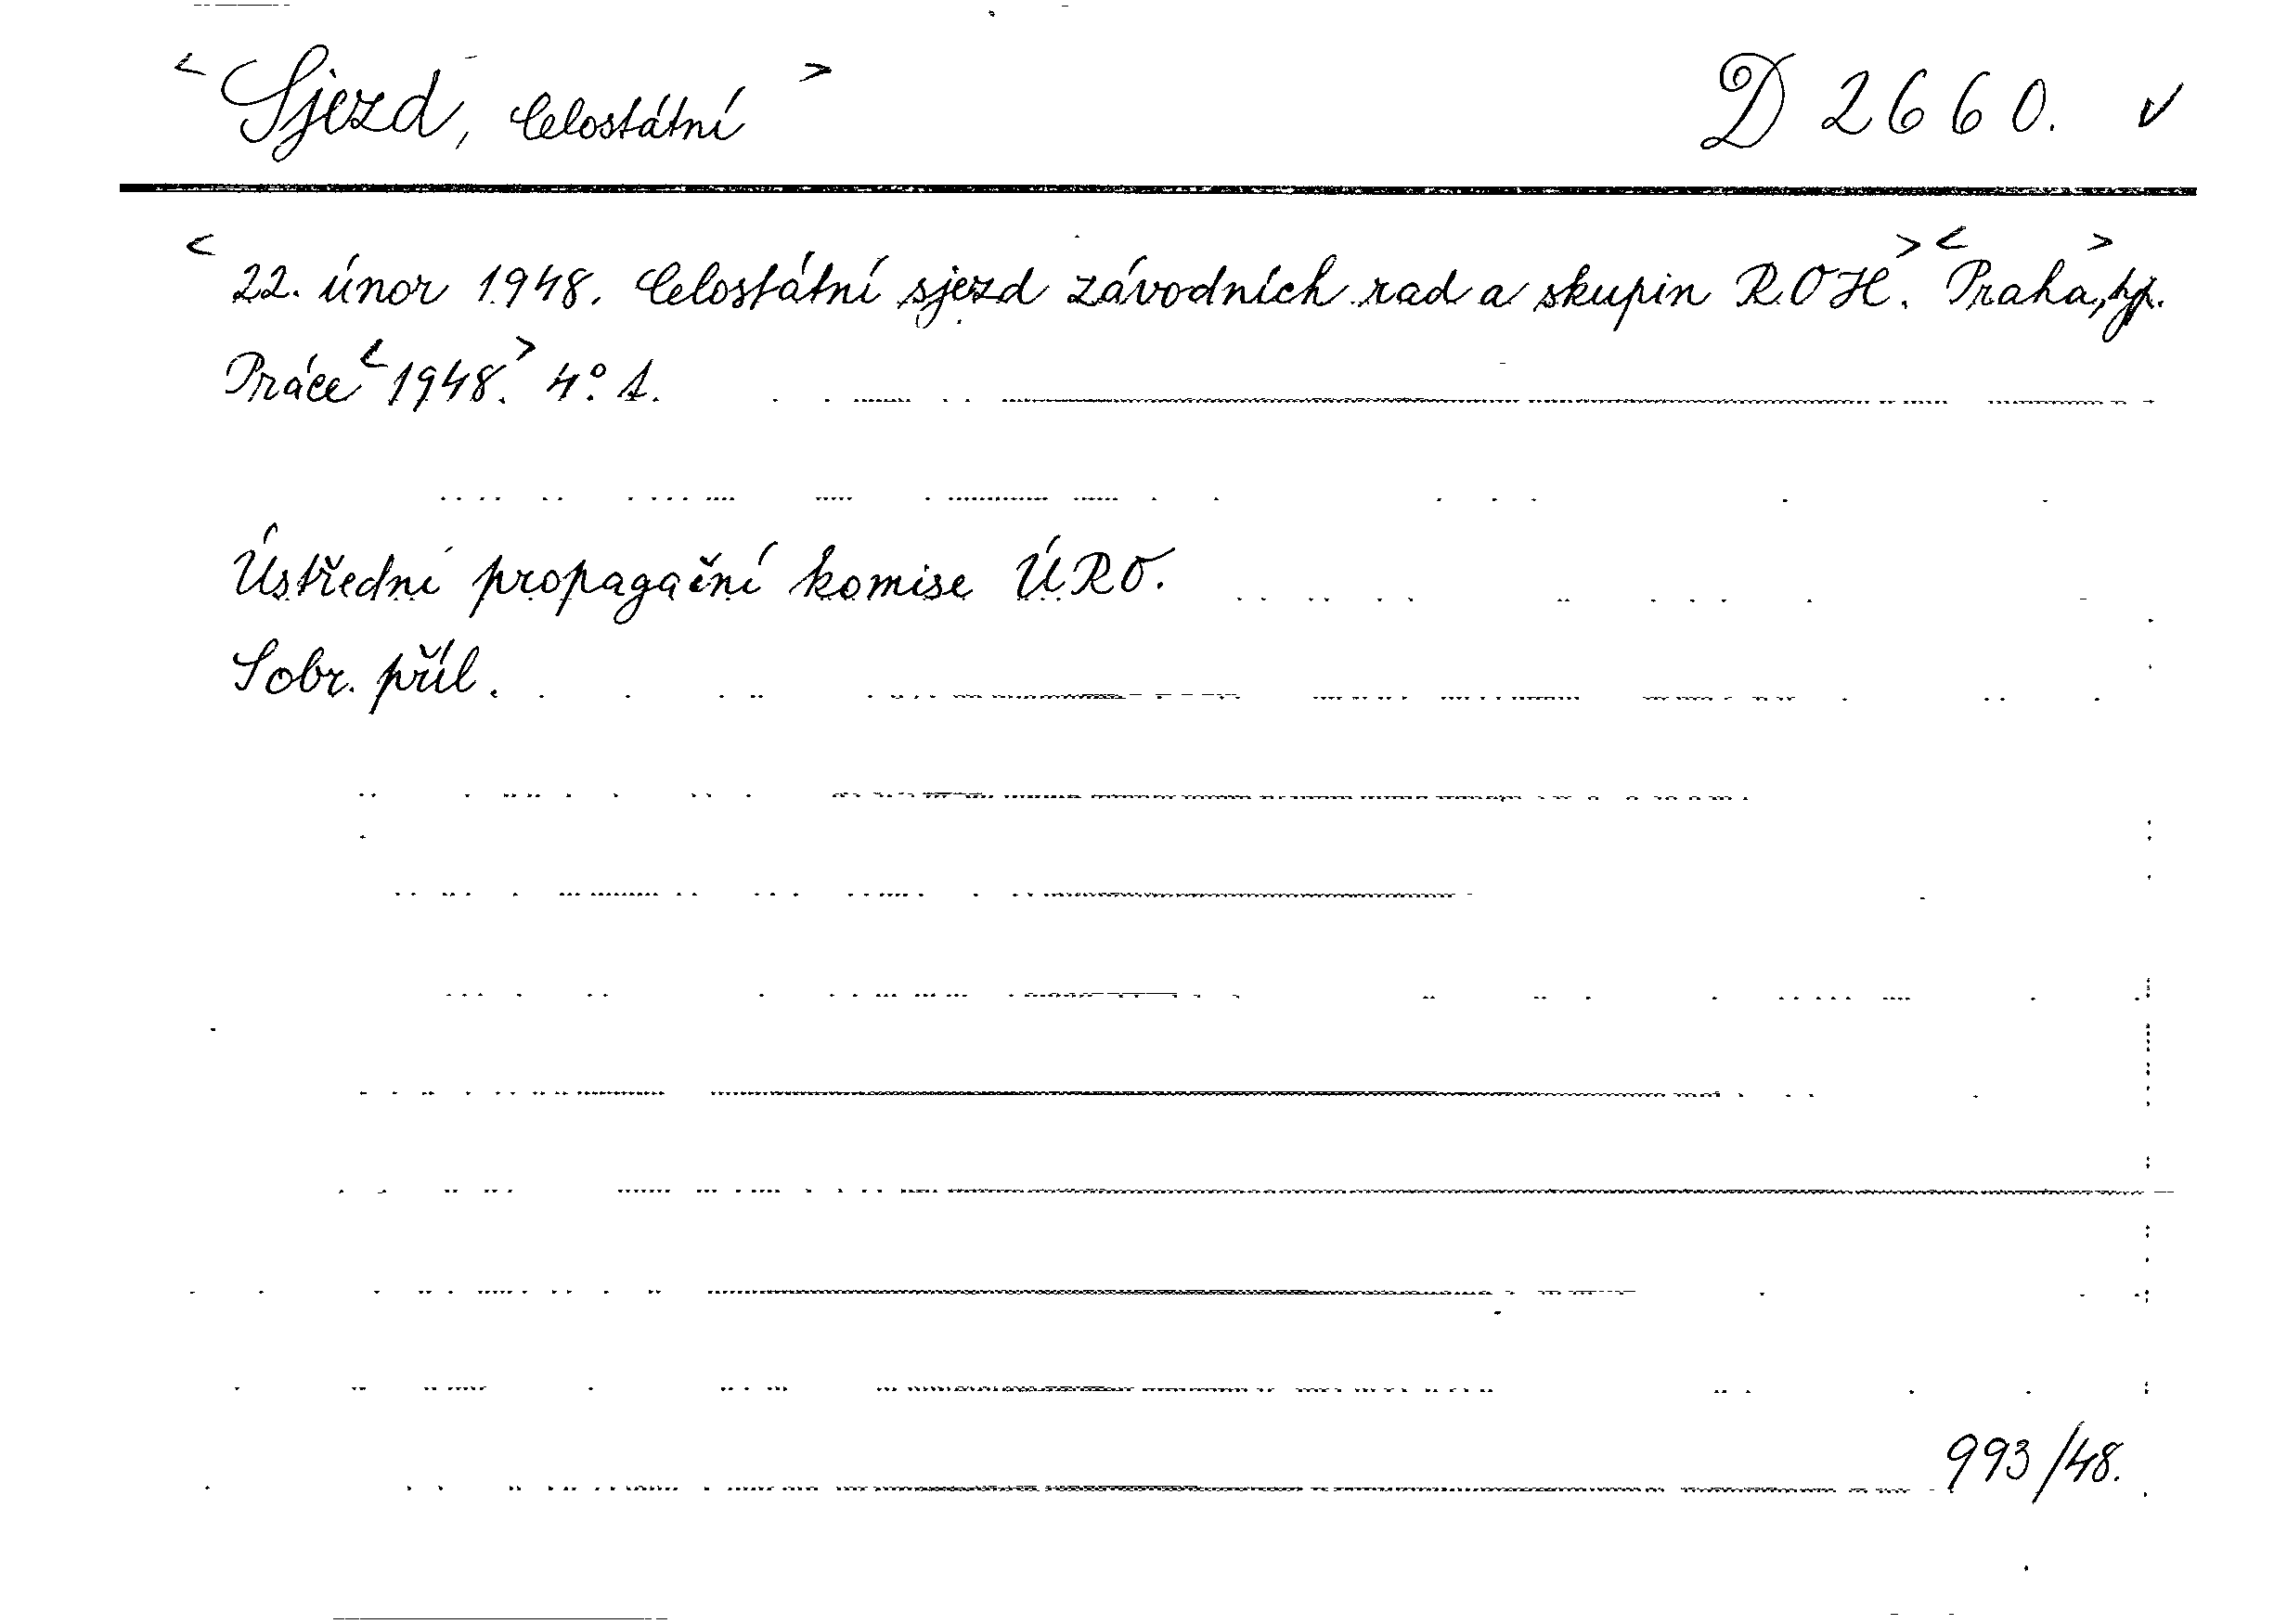 < Sjezd, Celostátní > D 2660. ✓
< 22. únor 1948. Celostátní sjezd závodních rad a skupin ROH. > < Praha, > typ.
Práce < 1948. > 4° 1.
Ústřední propagační komise ÚRO.
S obr. příl.
993/48.